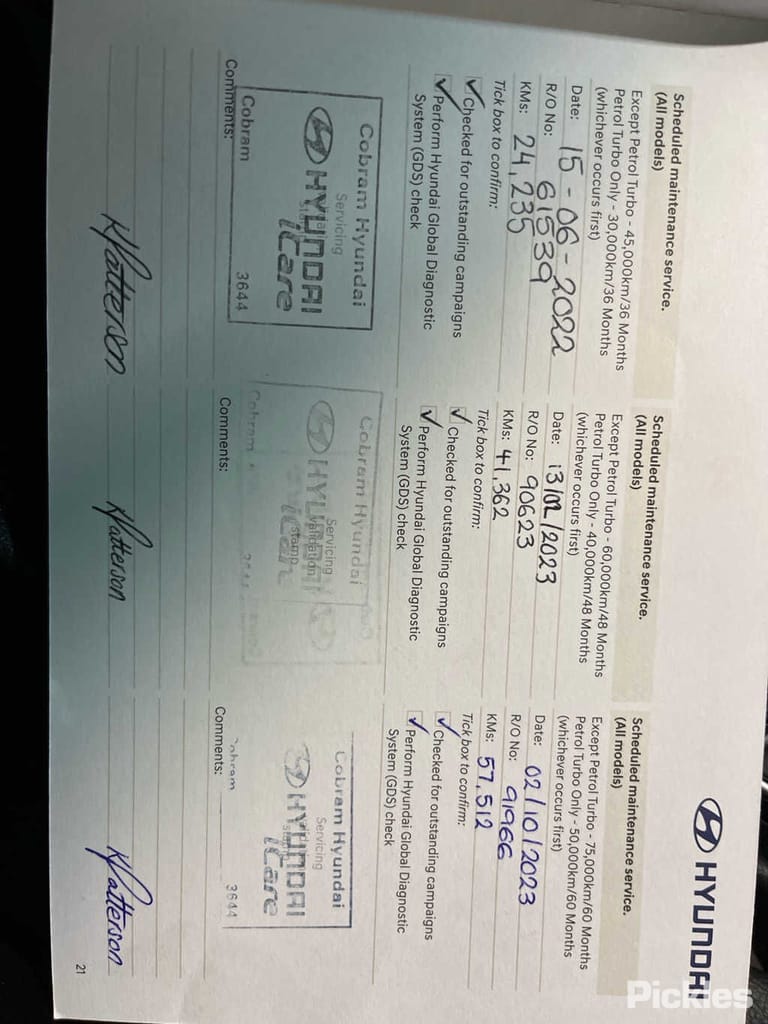 HYUNDAI
Scheduled maintenance service.
(All models)
Except Petrol Turbo - 45,000km/36 Months
Petrol Turbo Only - 30,000km/36 Months
(whichever occurs first)
Date: 15-06-2022
R/O No: 61539
KMs: 24,235
Tick box to confirm:
Checked for outstanding campaigns
Perform Hyundai Global Diagnostic
System (GDS) check
Cobram Hyundai
Servicing
HYUNDAI
iCare
Cobram 3644
Comments:
Patterson
Scheduled maintenance service.
(All models)
Except Petrol Turbo - 60,000km/48 Months
Petrol Turbo Only - 40,000km/48 Months
(whichever occurs first)
Date: 13/02/2023
R/O No: 90623
KMs: 41,362
Tick box to confirm:
Checked for outstanding campaigns
Perform Hyundai Global Diagnostic
System (GDS) check
Cobram Hyundai
Servicing
validation
stamp
HYUNDAI
iCare
Cobram
Comments:
Patterson
Scheduled maintenance service.
(All models)
Except Petrol Turbo - 75,000km/60 Months
Petrol Turbo Only - 50,000km/60 Months
(whichever occurs first)
Date: 02/10/2023
R/O No: 91966
KMs: 57,512
Tick box to confirm:
Checked for outstanding campaigns
Perform Hyundai Global Diagnostic
System (GDS) check
Cobram Hyundai
Servicing
HYUNDAI
iCare
Cobram 3644
Comments:
Patterson
21
Pickles